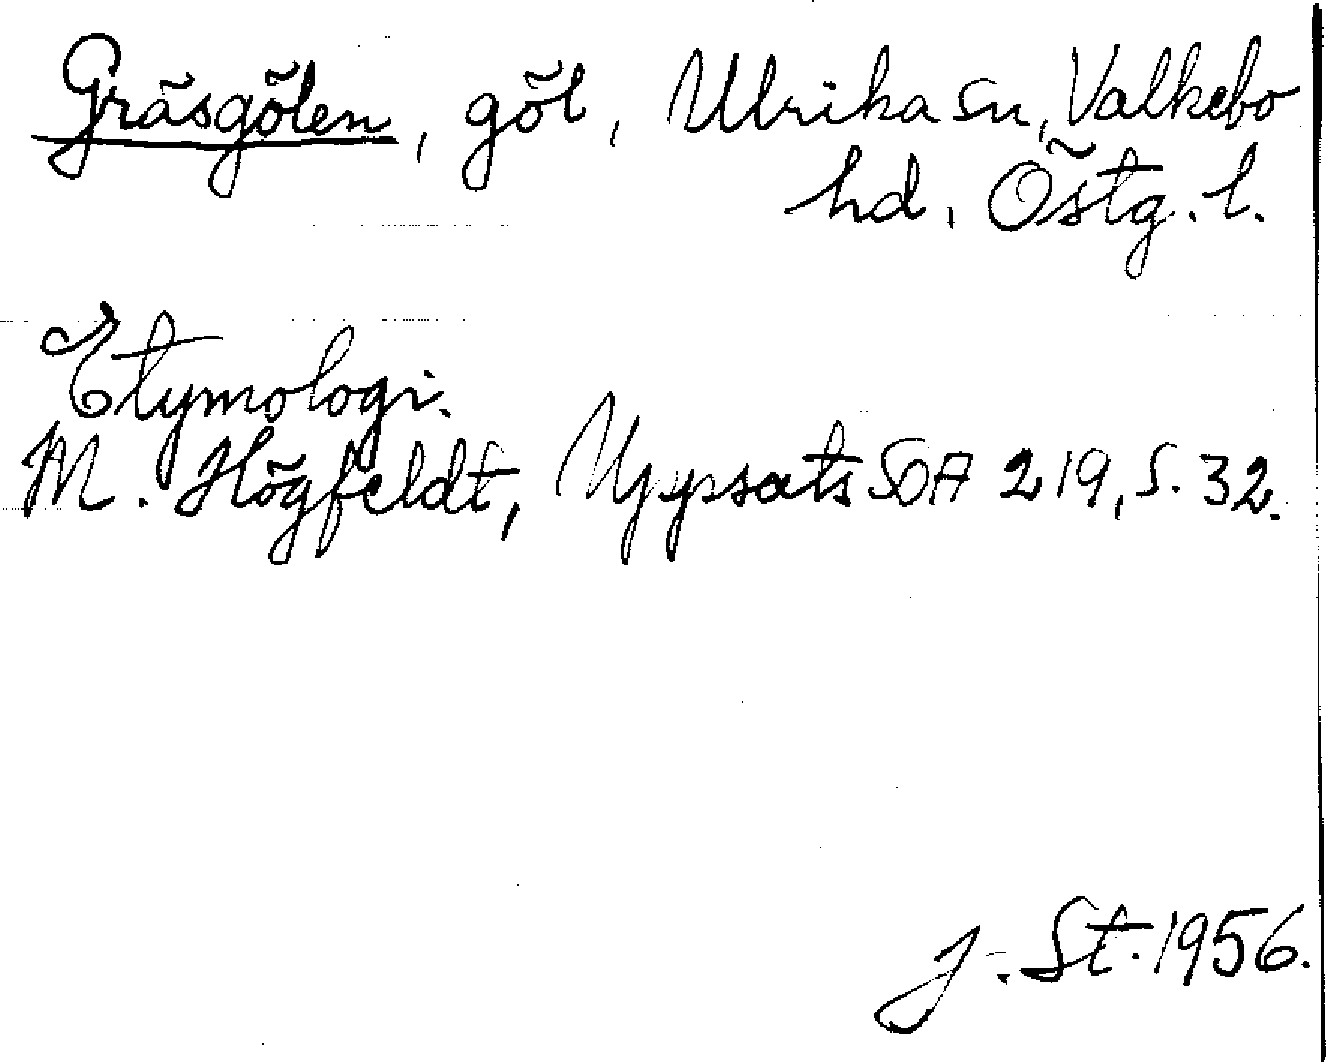 Gräsgölen, göl, Ulrika sn, Valkebo
hd, Östg. l.
Etymologi.
M. Högfeldt, Uppsats SOA 219, s. 32.
J. St. 1956.